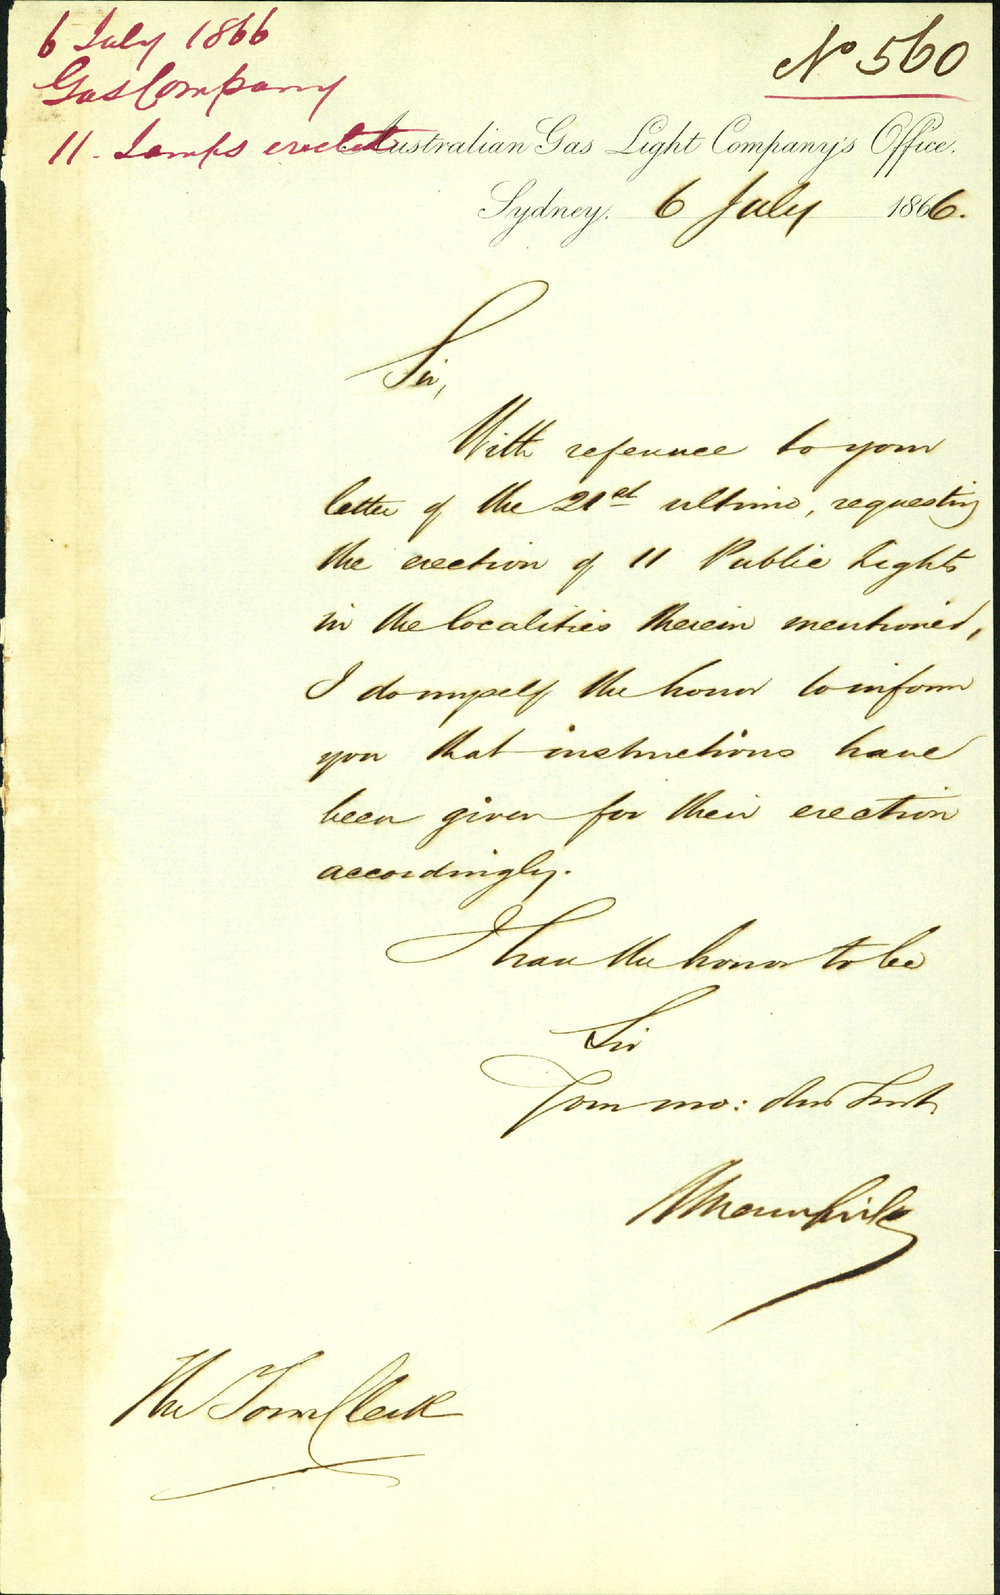 6 July 1866
Gas Company
11. Lamps erected
No 560
Australian Gas Light Company's Office.
Sydney. 6 July 1866.
Sir,
With reference to your
letter of the 21st ultimo, requesting
the erection of 11 Public Lights
in the localities therein mentioned,
I do myself the honor to inform
you that instructions have
been given for their erection
accordingly.
I have the honor to be
Sir
Your mo: obt Servt
The Town Clerk